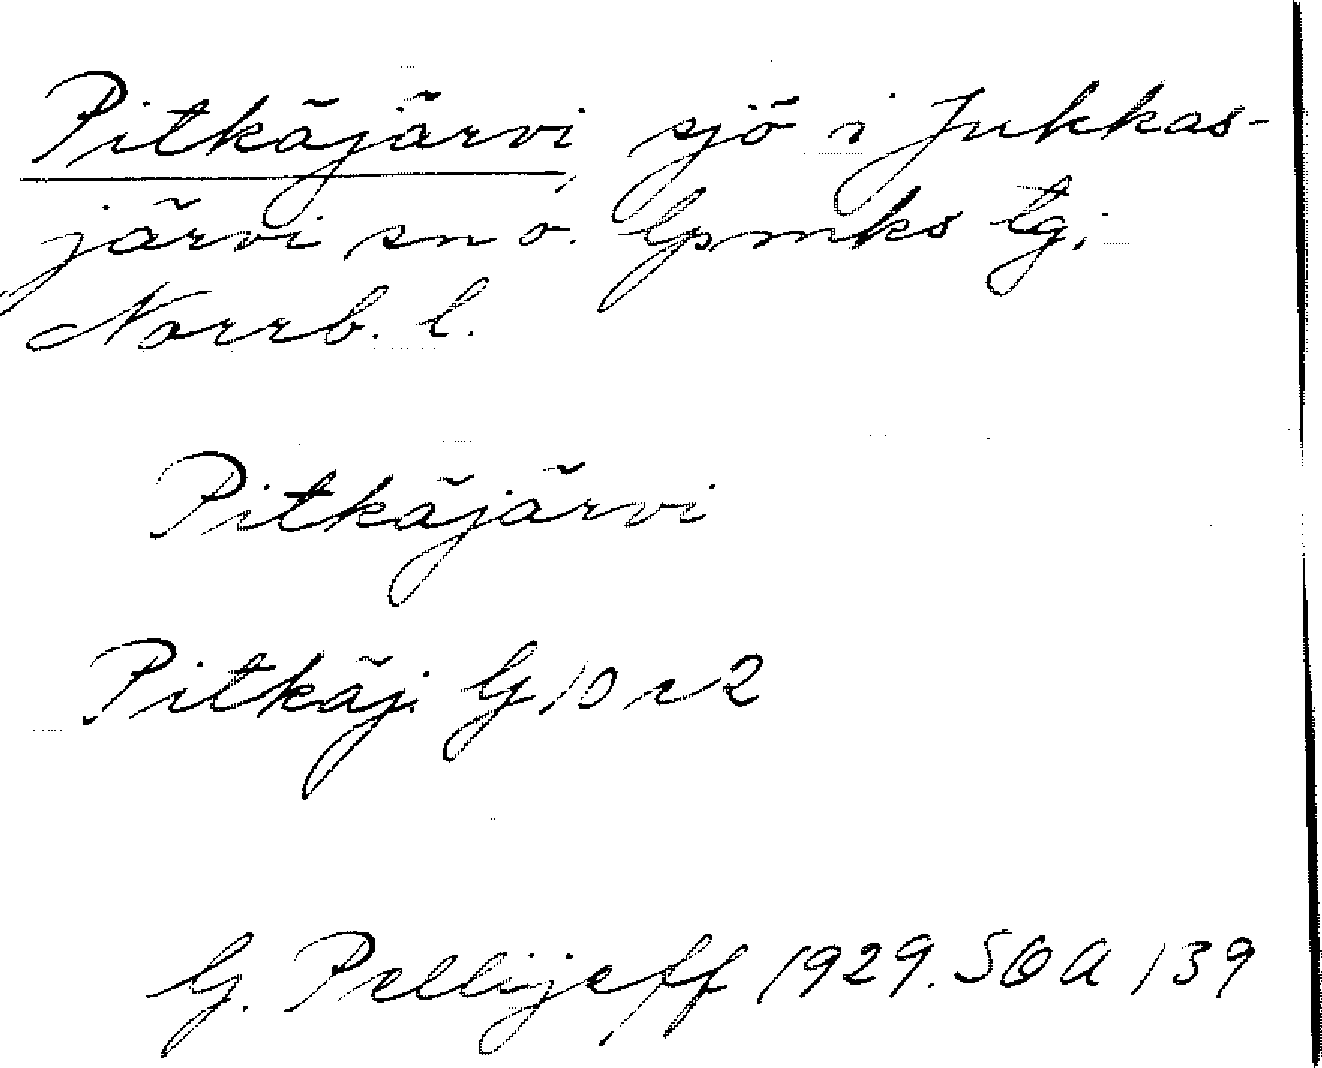 Pitkäjärvi, sjö i Jukkas-
järvi sn o. lpmks tg,
Norrb. l.
Pitkäjärvi
Pitkäj. G 10 r 2
G. Pellijeff 1929. SOA 139